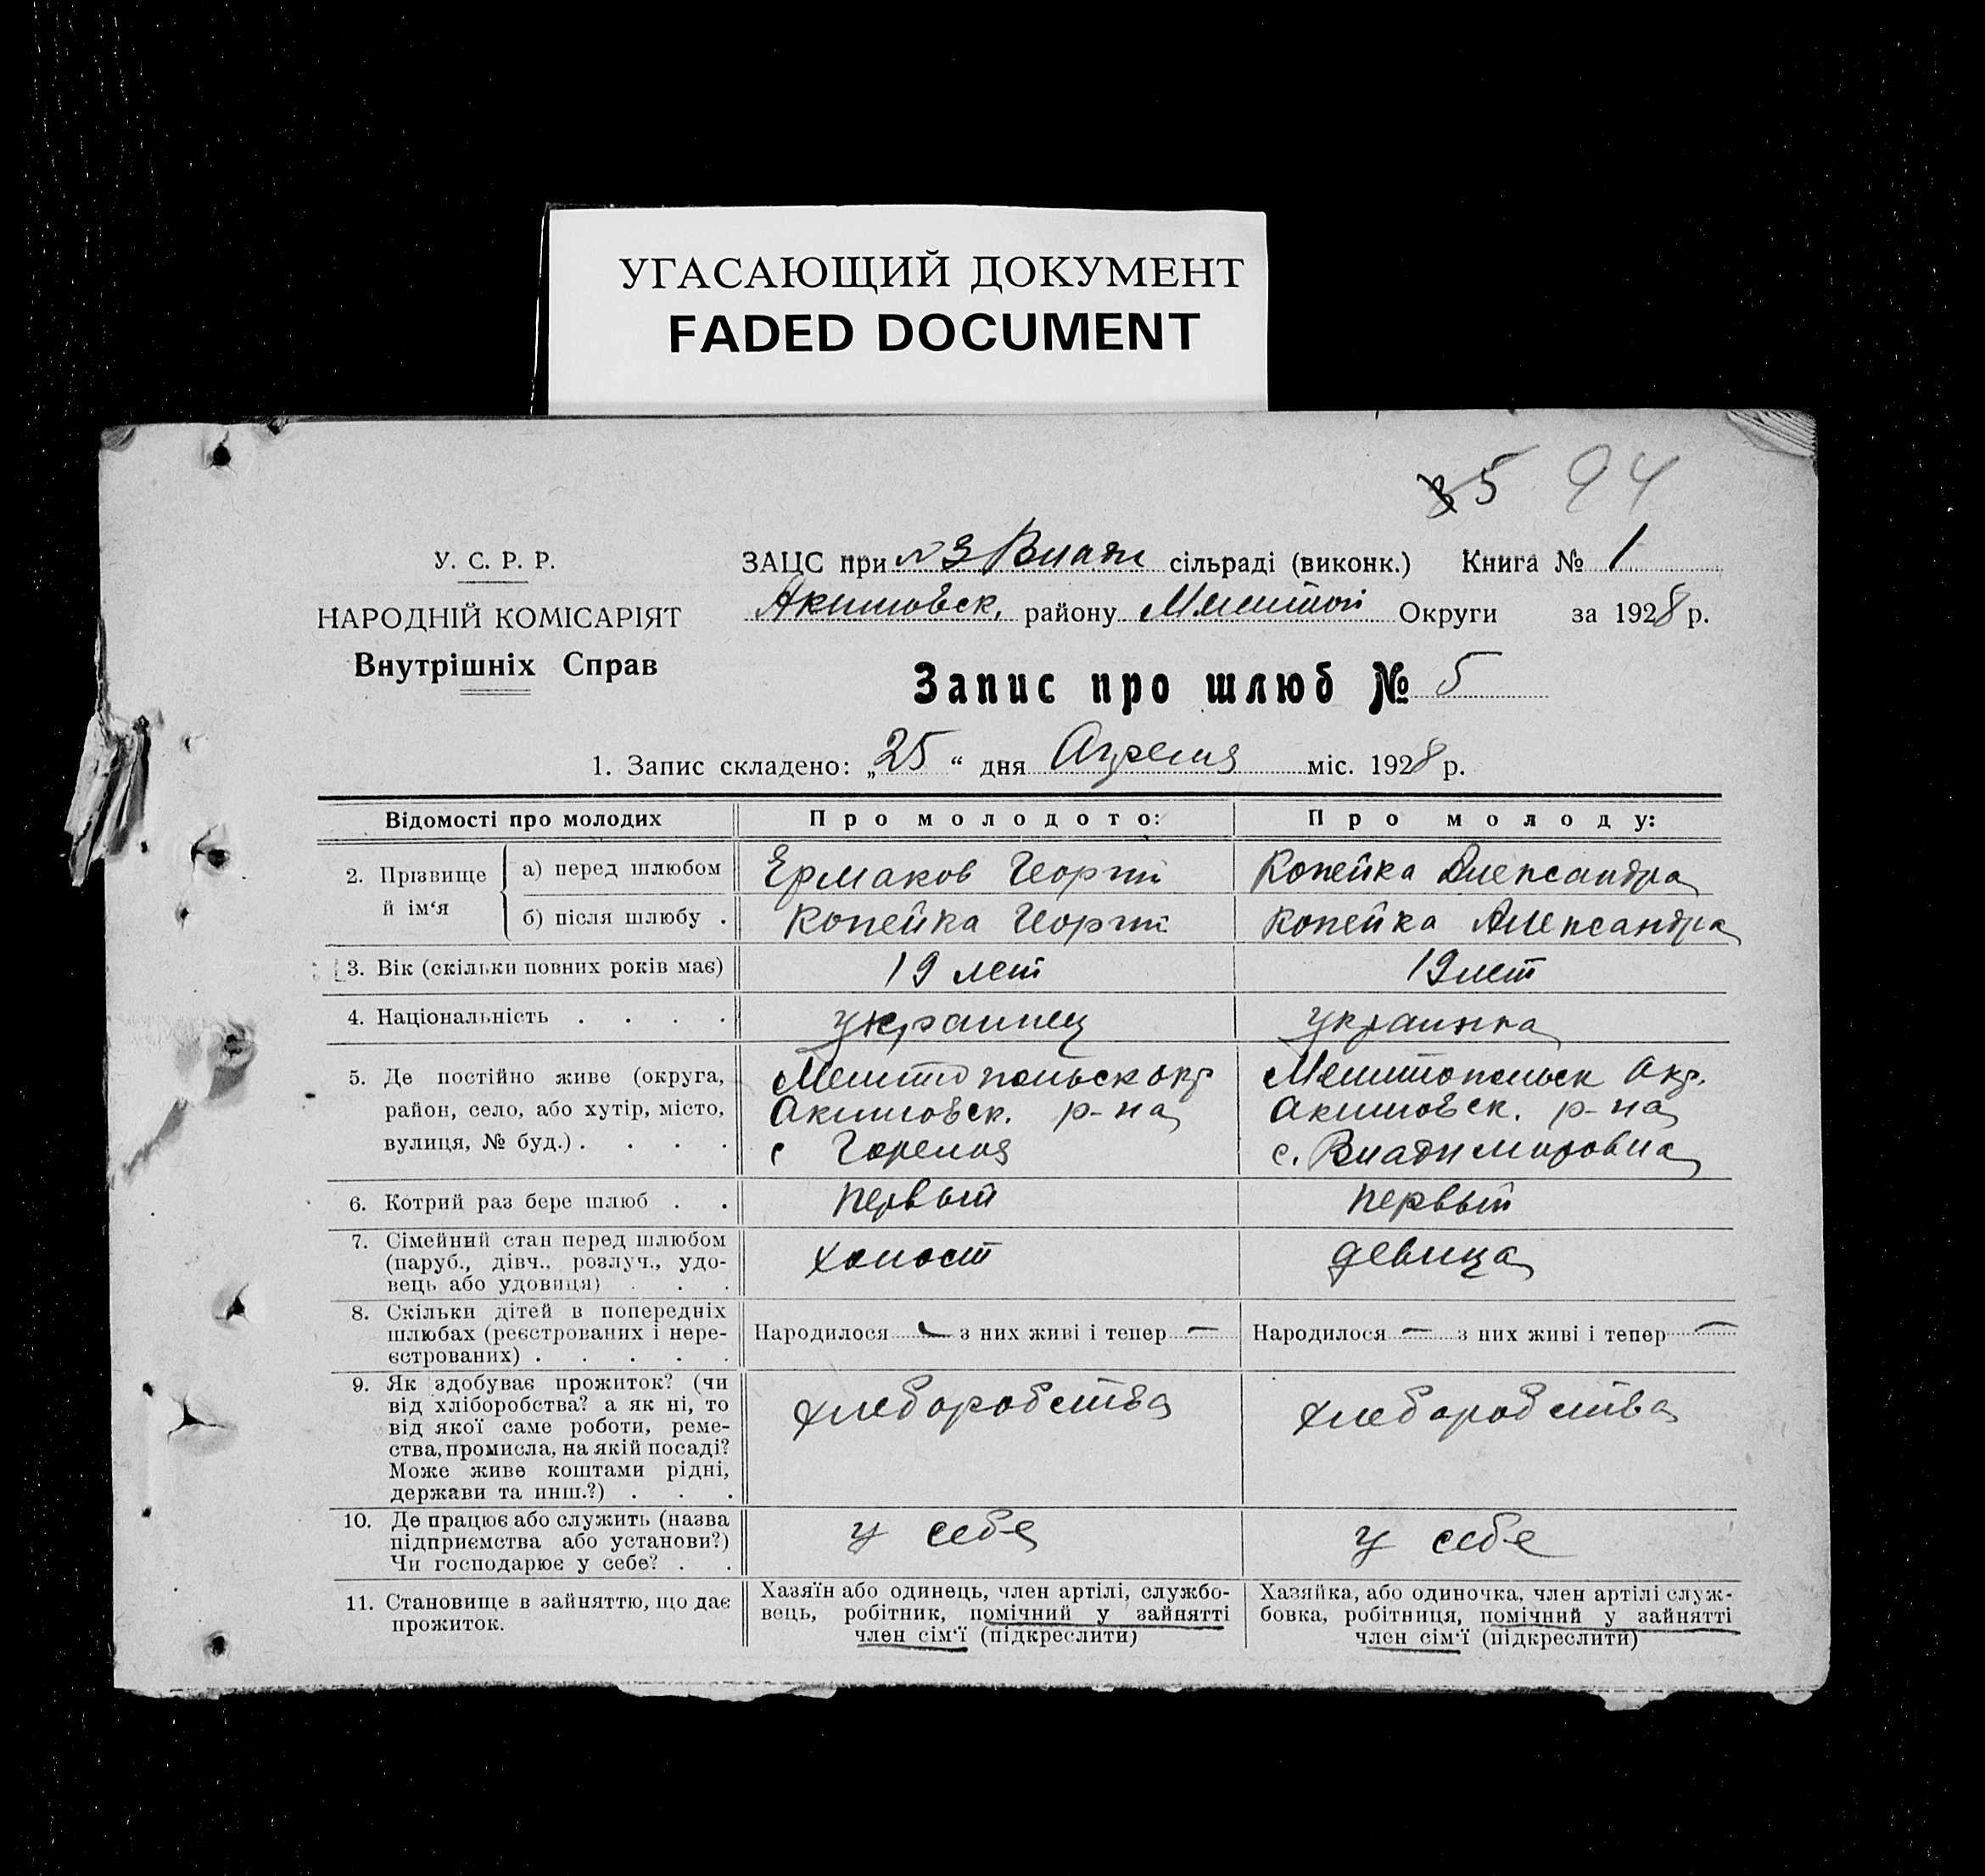 УГАСАЮЩИЙ ДОКУМЕНТ
FADED DOCUMENT
5 94
У. С. Р. Р.
НАРОДНІЙ КОМІСАРІЯТ
Внутрішніх Справ
ЗАЦС при №3 Влади сільраді (виконк.) Книга № 1
Акимовск. району Мелитоп Округи за 1928 р.
Запис про шлюб № 5
1. Запис складено: „25“ дня Апреля міс. 1928 р.
Відомості про молодих
Про молодого:
Про молоду:
2. Прізвище й ім‘я
а) перед шлюбом
Ермаков Георгій
Копейка Александра
б) після шлюбу .
Копейка Георгій
Копейка Александра
3. Вік (скільки повних років має)
19 лет
19 лет
4. Національність . . . .
украинец
украинка
5. Де постійно живе (округа,
район, село, або хутір, місто,
вулиця, № буд.) . . . .
Мелитопольск окр
Акимовск. р-на
с Горелая
Мелитопольск окр.
Акимовск. р-на
с. Владимировка
6. Котрий раз бере шлюб . .
первый
первый
7. Сімейний стан перед шлюбом
(паруб., дівч., розлуч., удо-
вець або удовиця) . . .
холост
девица
8. Скільки дітей в попередніх
шлюбах (реєстрованих і нере-
єстрованих) . . . . .
Народилося — з них живі і тепер —
Народилося — з них живі і тепер —
9. Як здобуває прожиток? (чи
від хліборобства? а як ні, то
від якої саме роботи, реме-
ства, промисла, на якій посаді?
Може живе коштами рідні,
держави та инш.?) . . .
хлеборобства
хлеборобства
10. Де працює або служить (назва
підприємства або установи?)
Чи господарює у себе? . .
у себе
у себе
11. Становище в зайняттю, що дає
прожиток.
Хазяїн або одинець, член артілі, службо-
вець, робітник, помічний у зайнятті
член сім‘ї (підкреслити)
Хазяйка, або одиночка, член артілі служ-
бовка, робітниця, помічний у зайнятті
член сім‘ї (підкреслити)